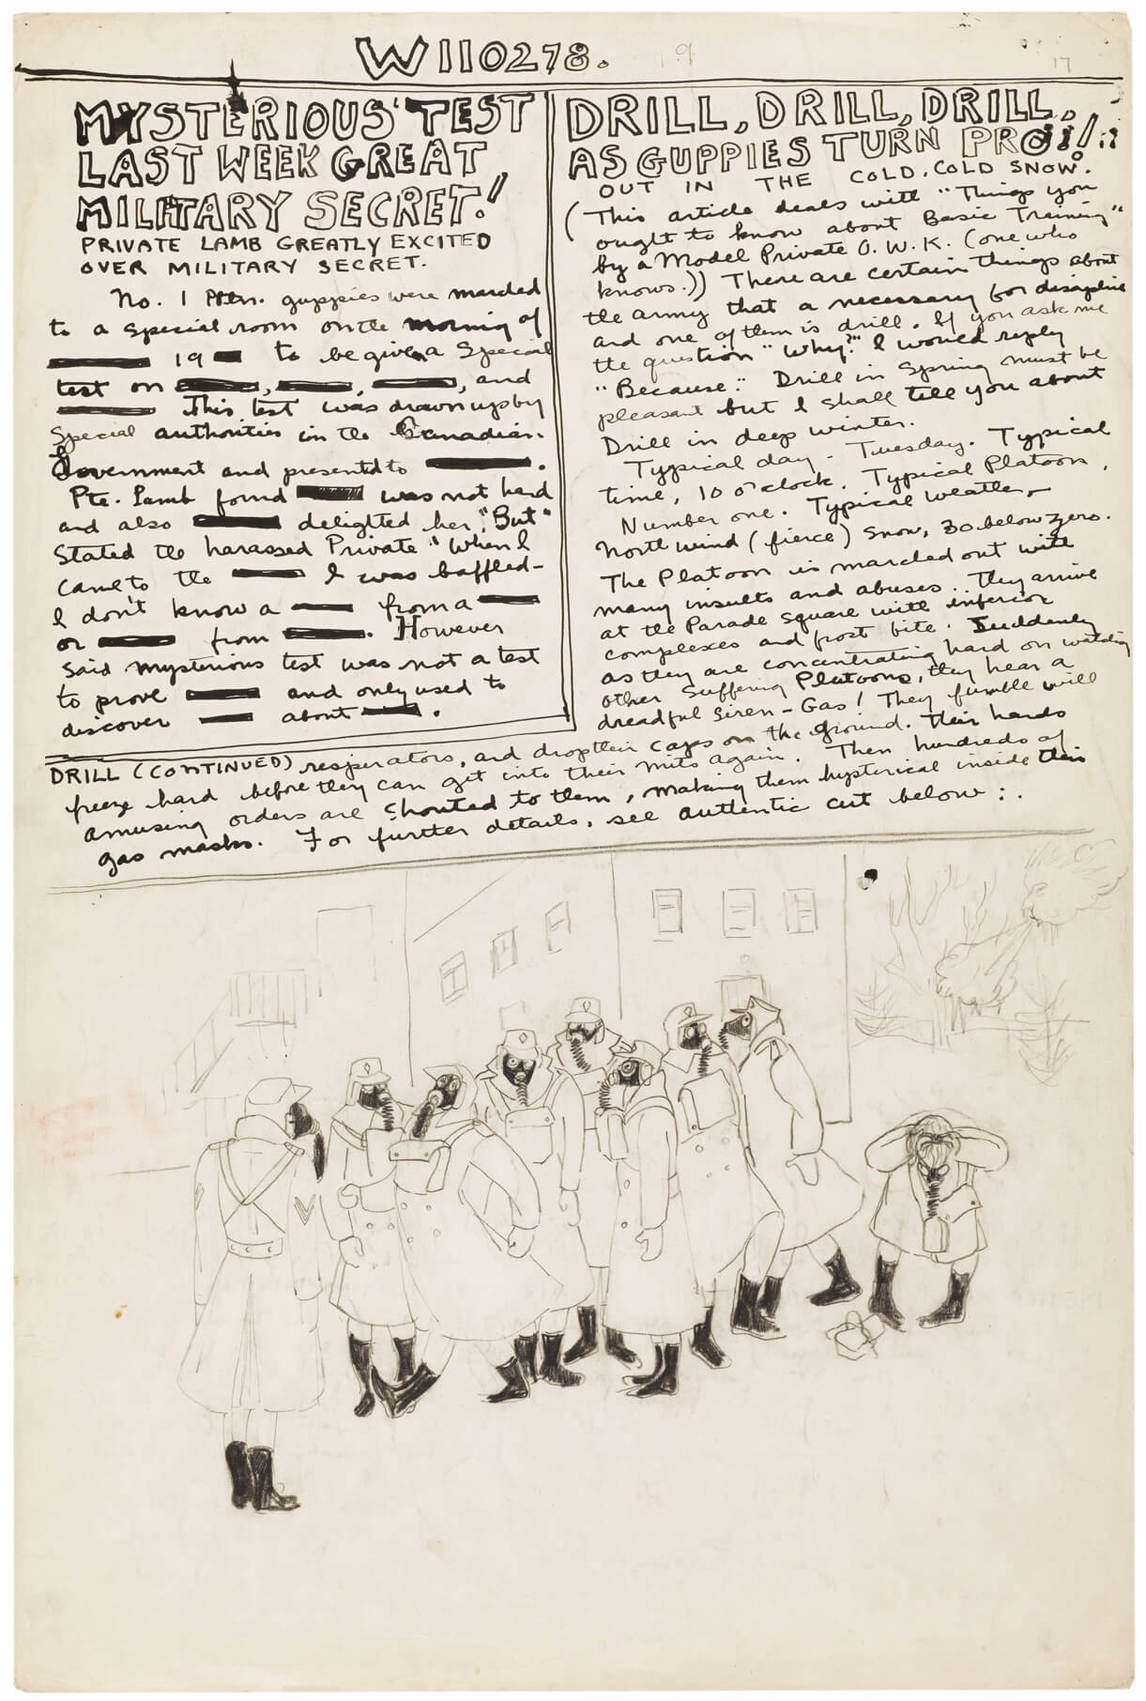 W110278.
19
17
MYSTERIOUS TEST
LAST WEEK GREAT
MILITARY SECRET!
PRIVATE LAMB GREATLY EXCITED
OVER MILITARY SECRET.
No. 1 Pltn. guppies were marched
to a special room on the morning of
19 to be given a special
test on , , , and
This test was drawn up by
special authorities in the Canadian
Government and presented to .
Pte. Lamb found was not hard
and also delighted her, "But"
stated the harassed Private "When I
came to the I was baffled-
I don't know a from a
or from . However
said mysterious test was not a test
to prove and only used to
discover about .
DRILL, DRILL, DRILL,
AS GUPPIES TURN PRO!
OUT IN THE COLD, COLD SNOW.
(This article deals with "Things you
ought to know about Basic Training"
by a Model Private O.W.K. (one who
knows.)) There are certain things about
the army that a necessary for discipline
and one of them is drill. If you ask me
the question "Why?" I would reply
"Because." Drill in Spring must be
pleasant but I shall tell you about
Drill in deep winter.
Typical day - Tuesday. Typical
time, 10 o'clock. Typical Platoon,
Number one. Typical weather -
North wind (fierce) Snow, 30 below zero.
The Platoon is marched out with
many insults and abuses. They arrive
at the Parade square with inferior
complexes and frost bite. Suddenly
as they are concentrating hard on watching
other suffering Platoons, they hear a
dreadful siren - Gas! They fumble will
DRILL (CONTINUED) respirators, and drop their caps on the ground. Their hands
freeze hard before they can get into their mits again. Then hundreds of
amusing orders are shouted to them, making them hysterical inside their
gas masks. For further details, see authentic cut below:.